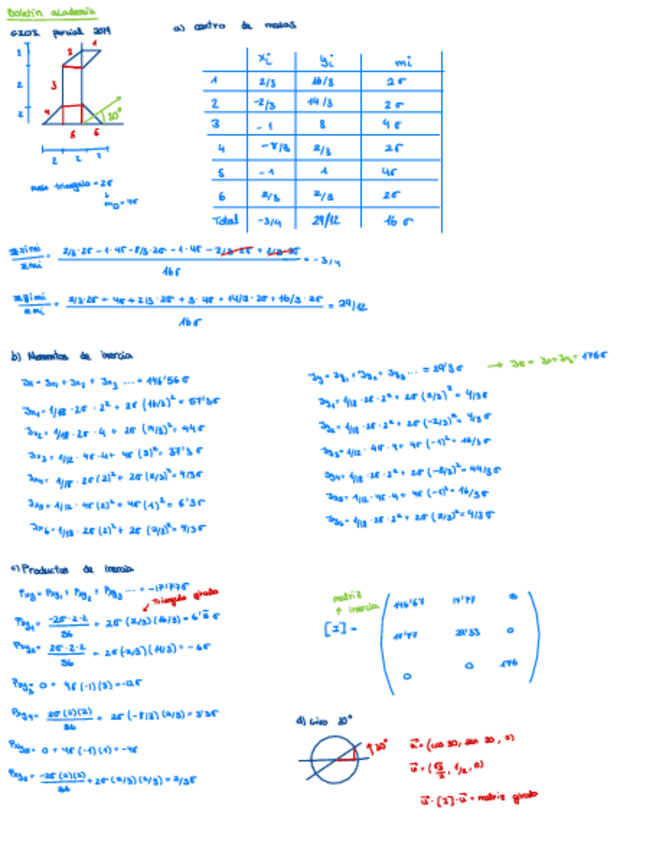 Boletín academia
GIOI parcial 2019
a) centro de masas
1
2
3
4
5
6
30°
2
2
2
masa triangulo = 2σ
m□ = 4σ
xi yi mi
1 2/3 16/3 2σ
2 -2/3 14/3 2σ
3 -1 3 4σ
4 -8/3 2/3 2σ
5 -1 1 4σ
6 2/3 2/3 2σ
Total -3/4 29/12 16σ
Σximi/Σmi = (2/3·2σ - 1·4σ - 8/3·2σ - 1·4σ - 2/3·2σ + 2/3·2σ)/16σ = -3/4
Σyimi/Σmi = (2/3·2σ + 4σ + 2/3·2σ + 3·4σ + 14/3·2σ + 16/3·2σ)/16σ = 29/12
b) Momentos de inercia
Jx = Jx1 + Jx2 + Jx3 ... = 146'56σ
Jx1 = 1/18·2σ·2² + 2σ(16/3)² = 57'3σ
Jx2 = 1/18·2σ·4 + 2σ(14/3)² = 44σ
Jx3 = 1/12·4σ·4 + 4σ(3)² = 37'3σ
Jx4 = 1/18·2σ(2)² + 2σ(2/3)² = 4/3σ
Jx5 = 1/12·4σ(2)² + 4σ(1)² = 5'3σ
Jx6 = 1/18·2σ(2)² + 2σ(2/3)² = 4/3σ
Jy = Jy1 + Jy2 + Jy3 ... = 29'3σ → Jz = Jx + Jy = 176σ
Jy1 = 1/18·2σ·2² + 2σ(2/3)² = 4/3σ
Jy2 = 1/18·2σ·2² + 2σ(-2/3)² = 4/3σ
Jy3 = 1/12·4σ·4 + 4σ(-1)² = 16/3σ
Jy4 = 1/18·2σ·2² + 2σ(-8/3)² = 44/3σ
Jy5 = 1/12·4σ·4 + 4σ(-1)² = 16/3σ
Jy6 = 1/18·2σ·2² + 2σ(2/3)² = 4/3σ
c) Productos de inercia
Pxy = Pxy1 + Pxy2 + Pxy3 ... = -17'77σ
Triangulo girado
Pxy1 = -2σ·2·2/36 + 2σ(2/3)(16/3) = 6'8σ
Pxy2 = 2σ·2·2/36 + 2σ(-2/3)(14/3) = -6σ
Pxy3 = 0 + 4σ(-1)(3) = -12σ
Pxy4 = 2σ(2)(2)/36 + 2σ(-8/3)(2/3) = 3'3σ
Pxy5 = 0 + 4σ(-1)(1) = -4σ
Pxy6 = -2σ(2)(2)/36 + 2σ(2/3)(2/3) = 2/3σ
matriz
inercia
[I] =
146'67 17'77 0
17'77 29'33 0
0 0 176
d) Giro 30°
30°
u = (cos 30, sen 30, 0)
u = (√3/2, 1/2, 0)
u·[I]·u = matriz girada